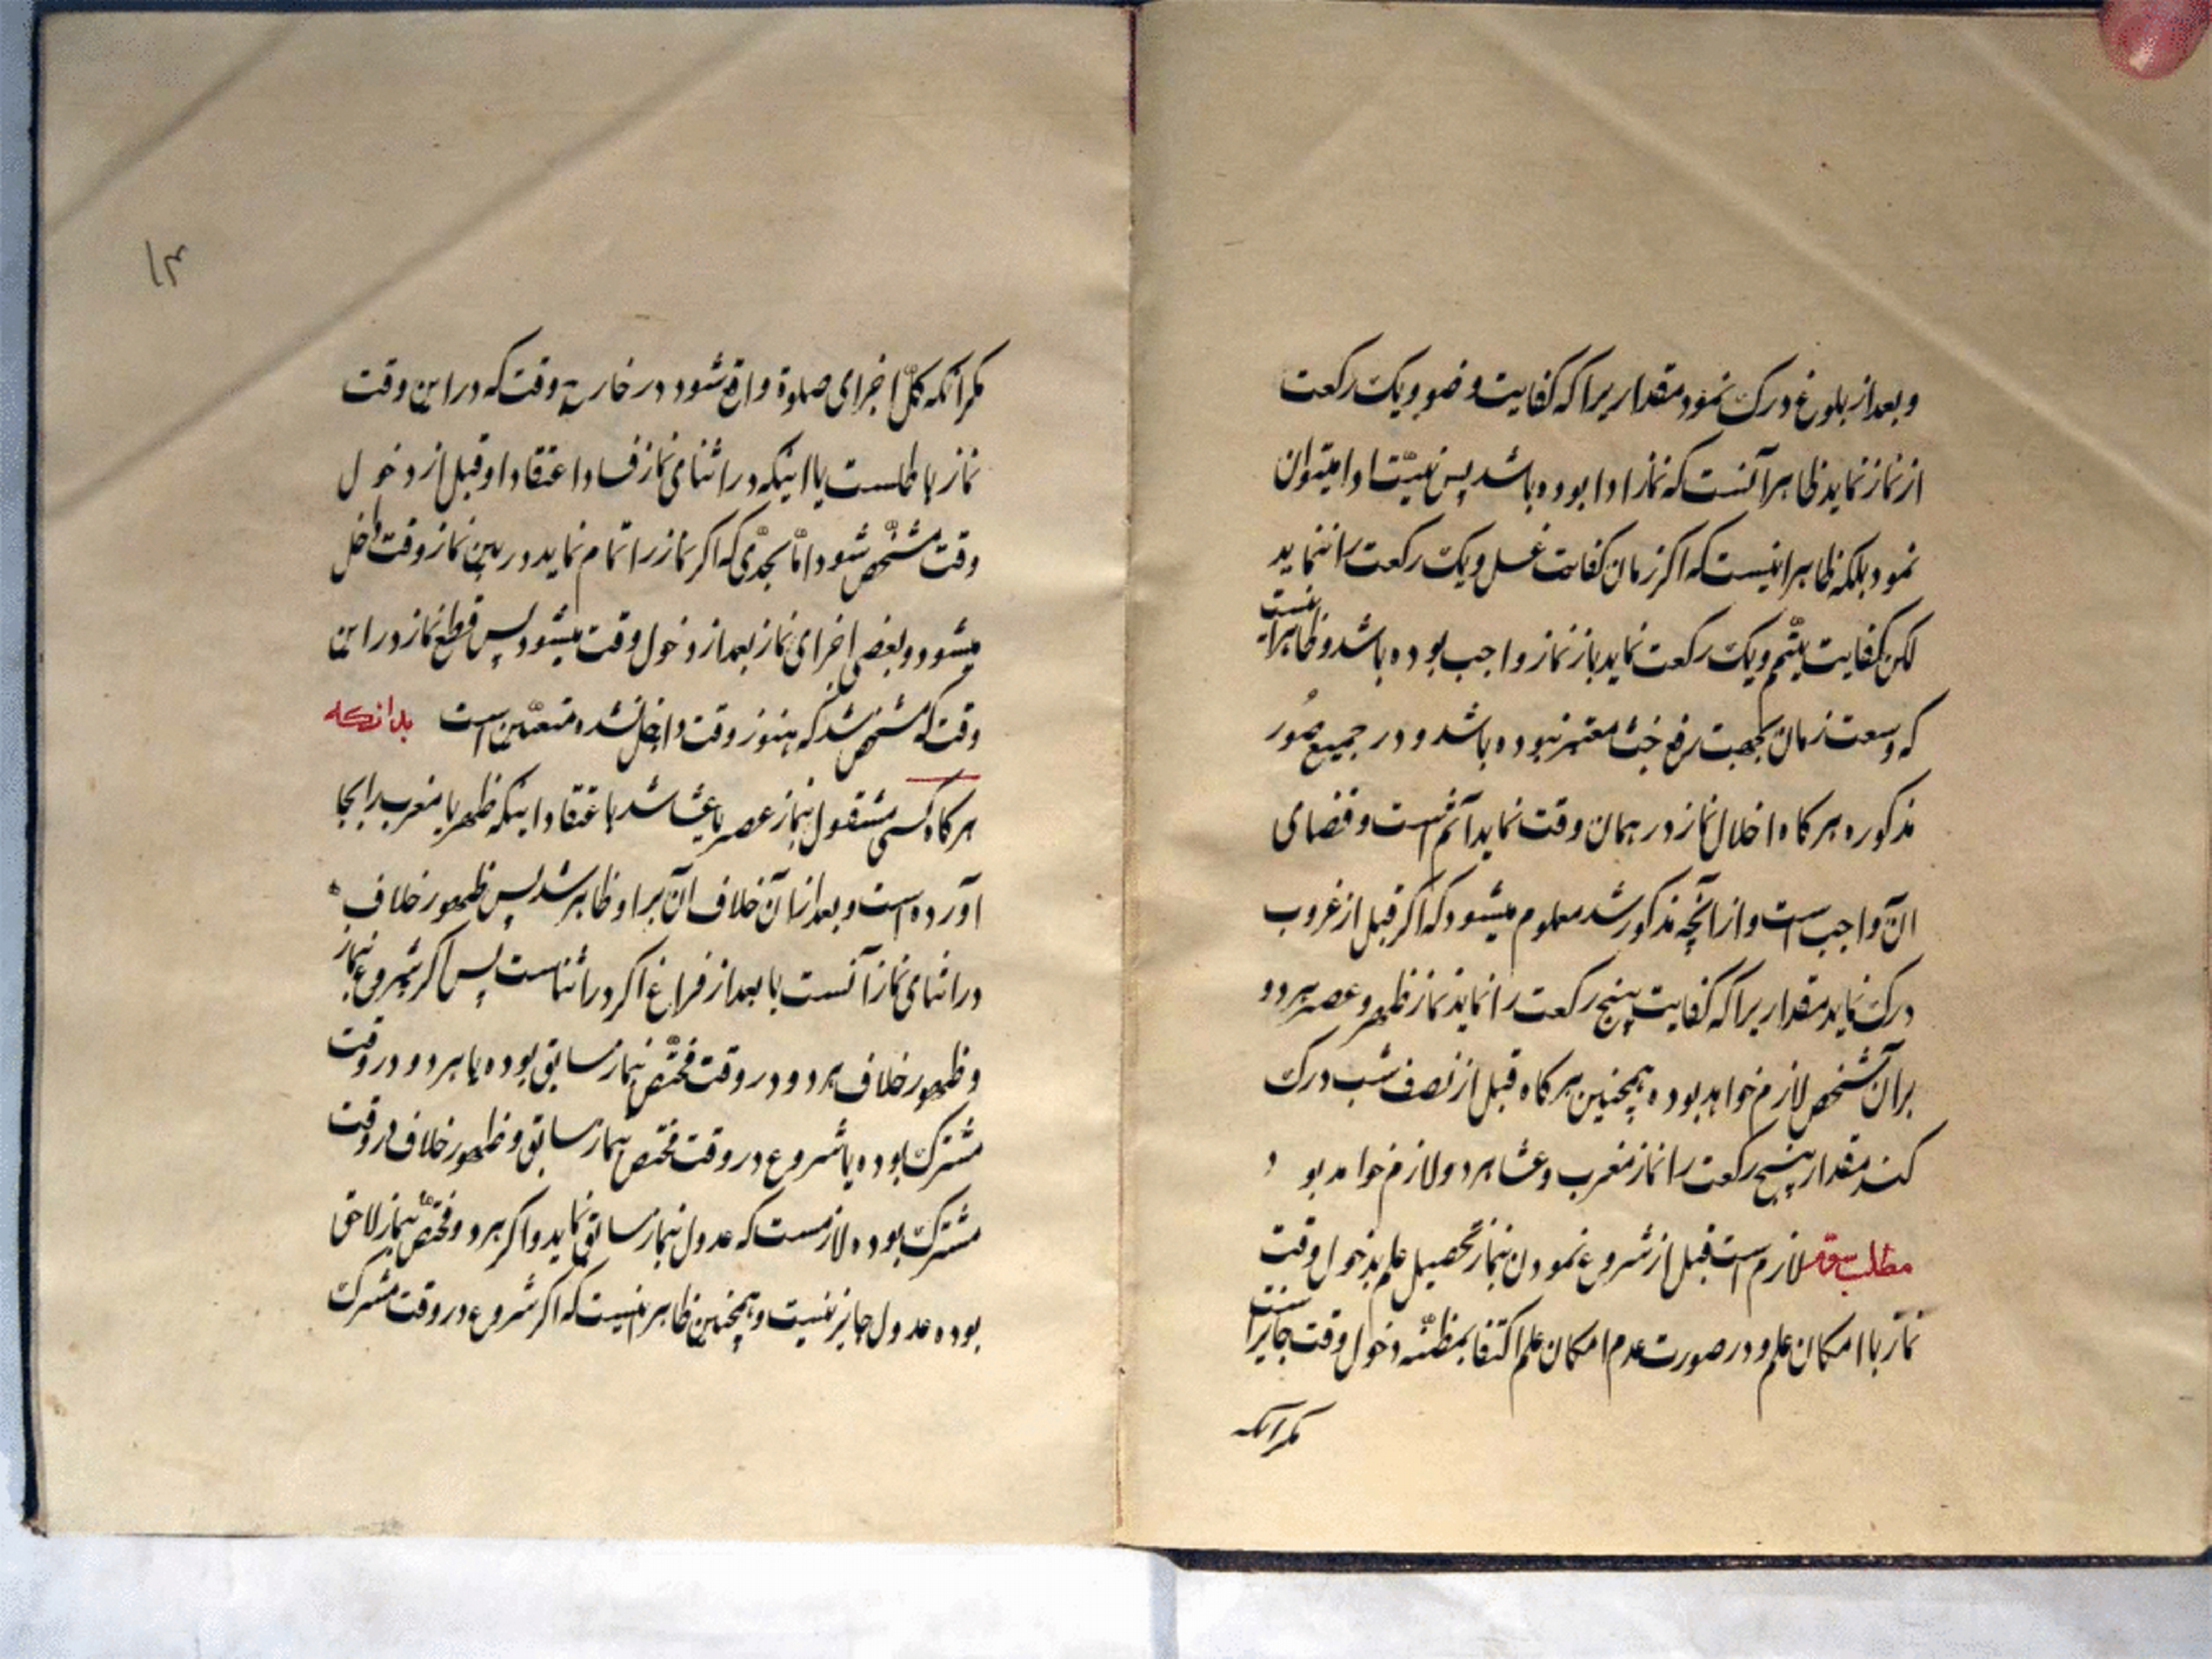 و بعد از بلوغ درک نمود مقداریرا که کفایت وضو و یک رکعت
از نماز نماید ظاهر آنست که نماز ادا بوده باشد پس نیّت ادا میتوان
نمود بلکه ظاهر اینست که اگر زمان کفایت غسل و یک رکعت را ننماید
لکن کفایت تیمّم و یک رکعت نماید باز نماز واجب بوده باشد و ظاهر اینست
که وسعت زمان بجهت رفع خبث معتبر نبوده باشد و در جمیع صُور
مذکوره هرگاه اخلال نماز در همان وقت نماید آثم است و قضای
آن واجب است و از آنچه مذکور شد معلوم میشود که اگر قبل از غروب
درک نماید مقداریرا که کفایت پنج رکعت را نماید نماز ظهر و عصر هر دو
بر آن شخص لازم خواهد بود و همچنین هرگاه قبل از نصف شب درک
کند مقدار پنج رکعت را نماز مغرب و عشا هر دو لازم خواهد بود
مطلب سوم لازم است قبل از شروع نمودن بنماز تحصیل علم بدخول وقت
نماز با امکان علم و در صورت عدم امکان علم اکتفا بمظنّه دخول وقت جایز است
مگر آنکه
۱۴
مگر آنکه کلّ اجزای صلوة واقع شود در خارج وقت که در این وقت
نماز باطلست یا اینکه در اثنای نماز فساد اعتقاد او قبل از دخول
وقت مشخّص شود امّا بحدّی که اگر نماز را تمام نماید در بین نماز وقت داخل
میشود و بعضی اجزای نماز بعد از دخول وقت میشود پس قطع نماز در این
وقت که مشخص شد که هنوز وقت داخل نشده متعیّن است بدانکه
هرگاه کسی مشغول بنماز عصر یا عشا شد باعتقاد اینکه ظهر یا مغرب را بجا
آورده است و بعد از آن خلاف آن بر او ظاهر شد پس ظهور خلاف
در اثنای نماز آنست یا بعد از فراغ اگر در اثناست پس اگر شروع بنماز
و ظهور خلاف هر دو در وقت مختّص بنماز سابق بوده یا هر دو در وقت
مشترک بوده یا شروع در وقت مختص بنماز سابق و ظهور خلاف در وقت
مشترک بوده لازمست که عدول بنماز سابق نماید و اگر هر دو مختصّ بنماز لاحق
بوده عدول جایز نیست و همچنین ظاهر اینست که اگر شروع در وقت مشترک